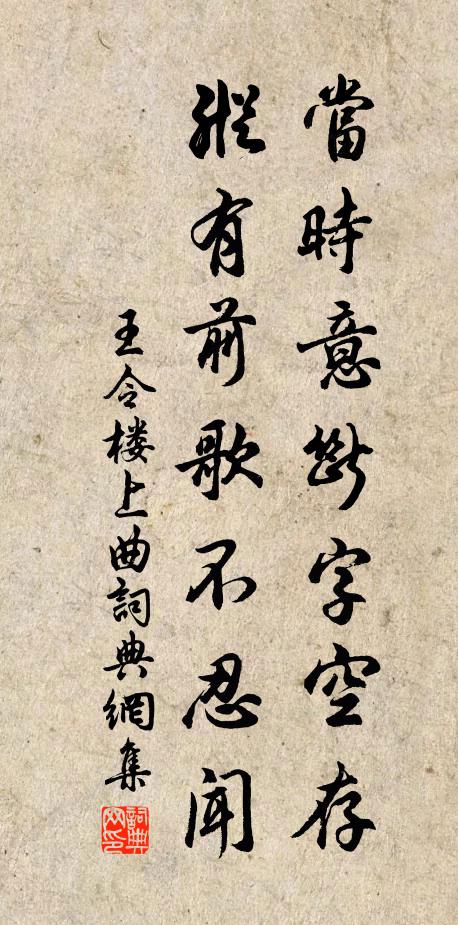 當時意斷字空存
縱有前歌不忍聞
王令楼上曲詞典網集
詞典网印